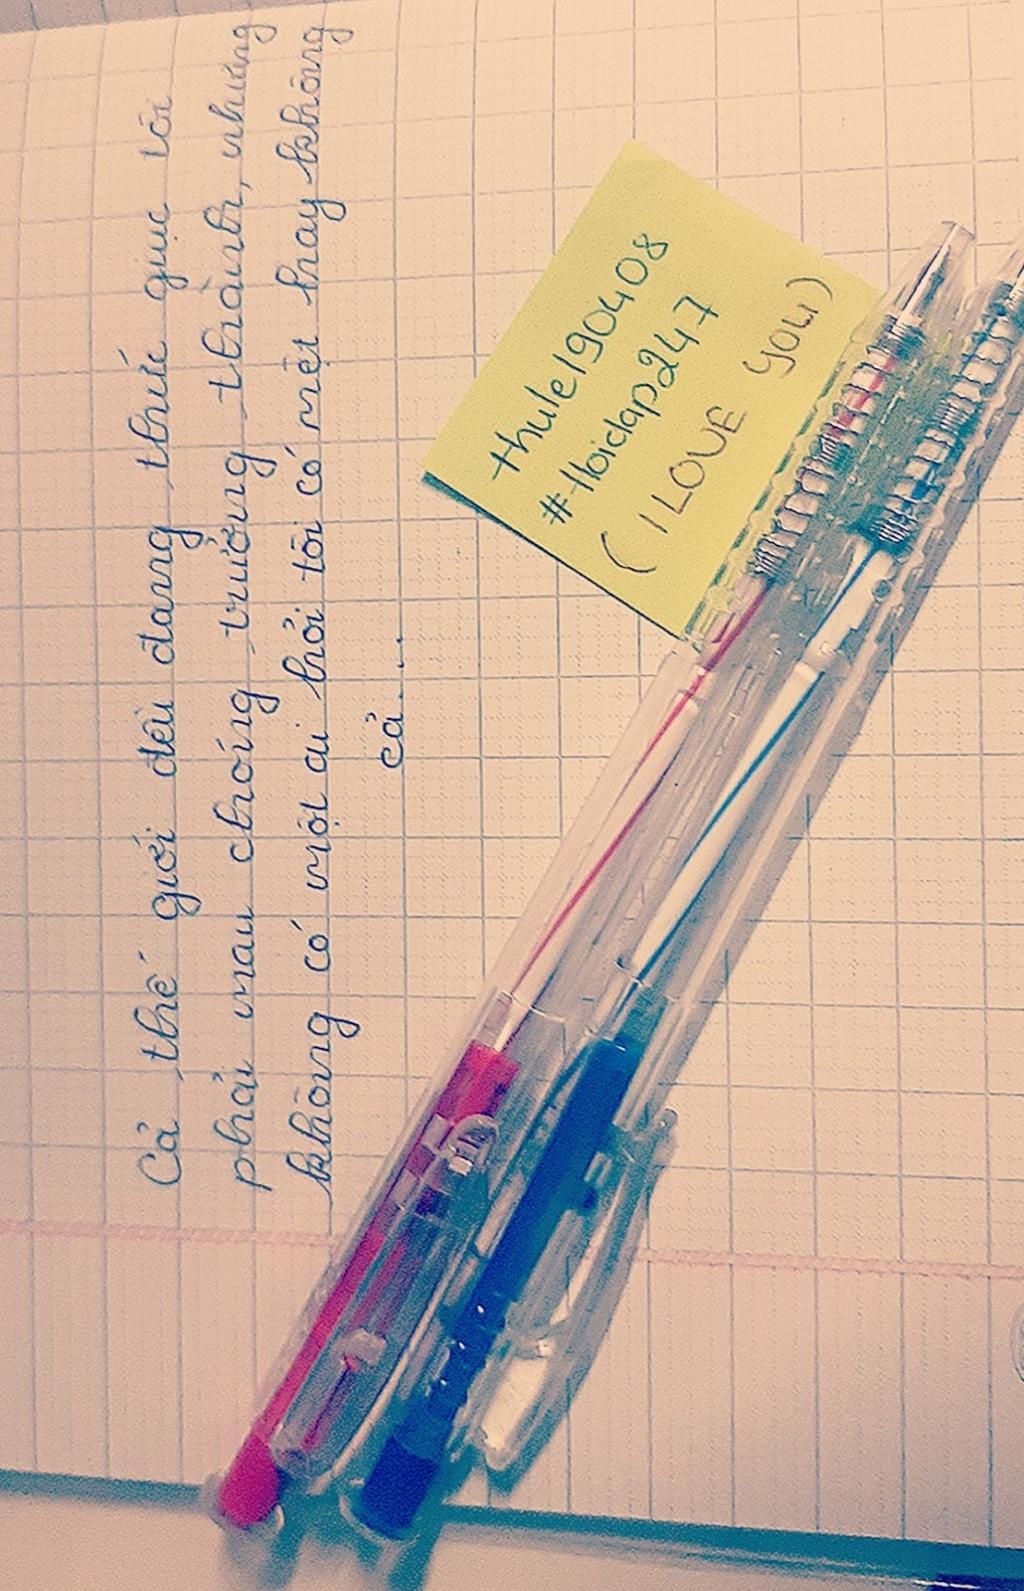 Cả thế giới đều đang thúc giục tôi
phải mau chóng trưởng thành, nhưng
không có một ai hỏi tôi có mệt hay không
cả....
thule190408
#lloidap247
( I LOVE YOU )